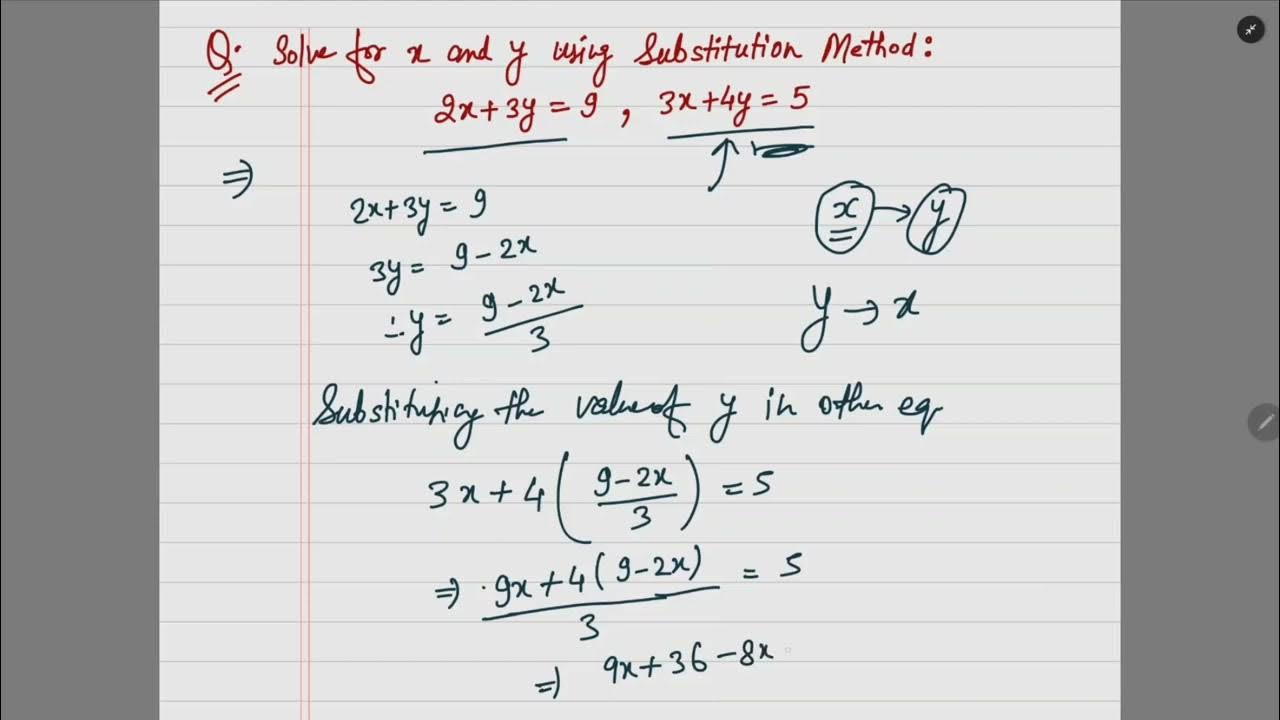 Q. Solve for x and y using Substitution Method:
2x+3y = 9 , 3x+4y = 5
⇒
2x+3y = 9
3y = 9-2x
∴y = (9-2x)/3
x → y
y → x
Substituting the value of y in other eq
3x+4((9-2x)/3) = 5
⇒ (9x+4(9-2x))/3 = 5
⇒ 9x+36-8x